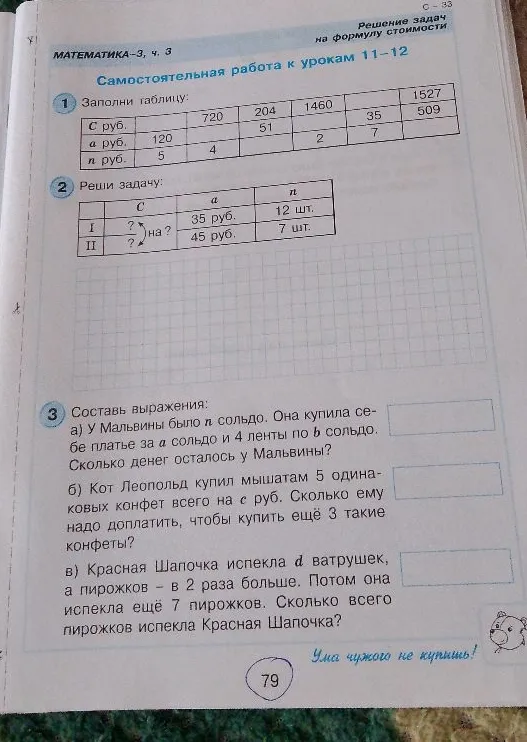 С – 33
Решение задач
на формулу стоимости
МАТЕМАТИКА–3, ч. 3
Самостоятельная работа к урокам 11–12
1 Заполни таблицу:
C руб. 720 204 1460 1527
a руб. 120 51 35 509
n руб. 5 4 2 7
2 Реши задачу:
C a n
I ? на ? 35 руб. 12 шт.
II ? 45 руб. 7 шт.
3 Составь выражения:
а) У Мальвины было n сольдо. Она купила се-
бе платье за a сольдо и 4 ленты по b сольдо.
Сколько денег осталось у Мальвины?
б) Кот Леопольд купил мышатам 5 одина-
ковых конфет всего на c руб. Сколько ему
надо доплатить, чтобы купить ещё 3 такие
конфеты?
в) Красная Шапочка испекла d ватрушек,
а пирожков – в 2 раза больше. Потом она
испекла ещё 7 пирожков. Сколько всего
пирожков испекла Красная Шапочка?
Ума чужого не купишь!
79